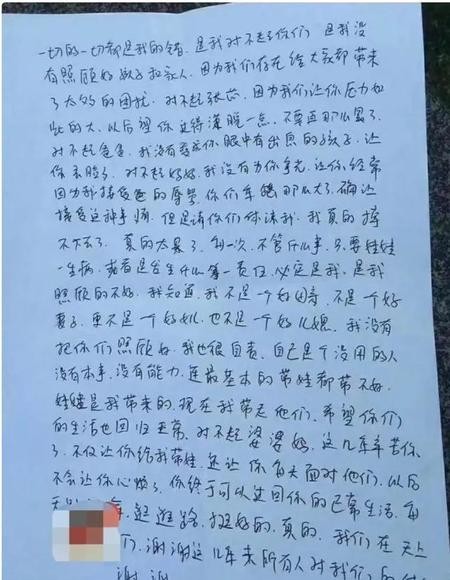 一切的一切都是我的错,是我对不起你们,是我没
有照顾好孩子和家人,因为我们存在给大家都带来
了太多的困扰,对不起张 因为我们让你压力如
此的大,以后望你过得潇脱一点,不要再那么累了,
对不起爸爸,我没有变成你眼中有出息的孩子,让
你丢脸了,对不起妈妈,我没有为你争光,让你经常
因为我接受爸的辱骂,你们年纪那么大了,确让
接受这种事情,但是请你们体谅我,我真的撑
不下去了,真的太累了,每一次,不管什么事,只要娃娃
一生病,或者是发生什么第一责任,必定是我,是我
照顾的不好,我知道,我不是一个好母亲,不是一个好
妻子,更不是一个好女儿,也不是一个好儿媳,我没有
把你们照顾好,我也很自责,自己是个没用的人
没有本事,没有能力,连最基本的带娃都带不好,
娃娃是我带来的,现在我带走他们,希望你们
的生活也回归正常,对不起婆婆妈,这几年辛苦你
了,不仅让你给我带娃,还让你每天面对他们,以后
不会让你心烦了,你终于可以过回你的正常生活,每
逛逛路,挺好的,真的,我们在天上
们,谢谢这几年来所有人对我们的
谢谢